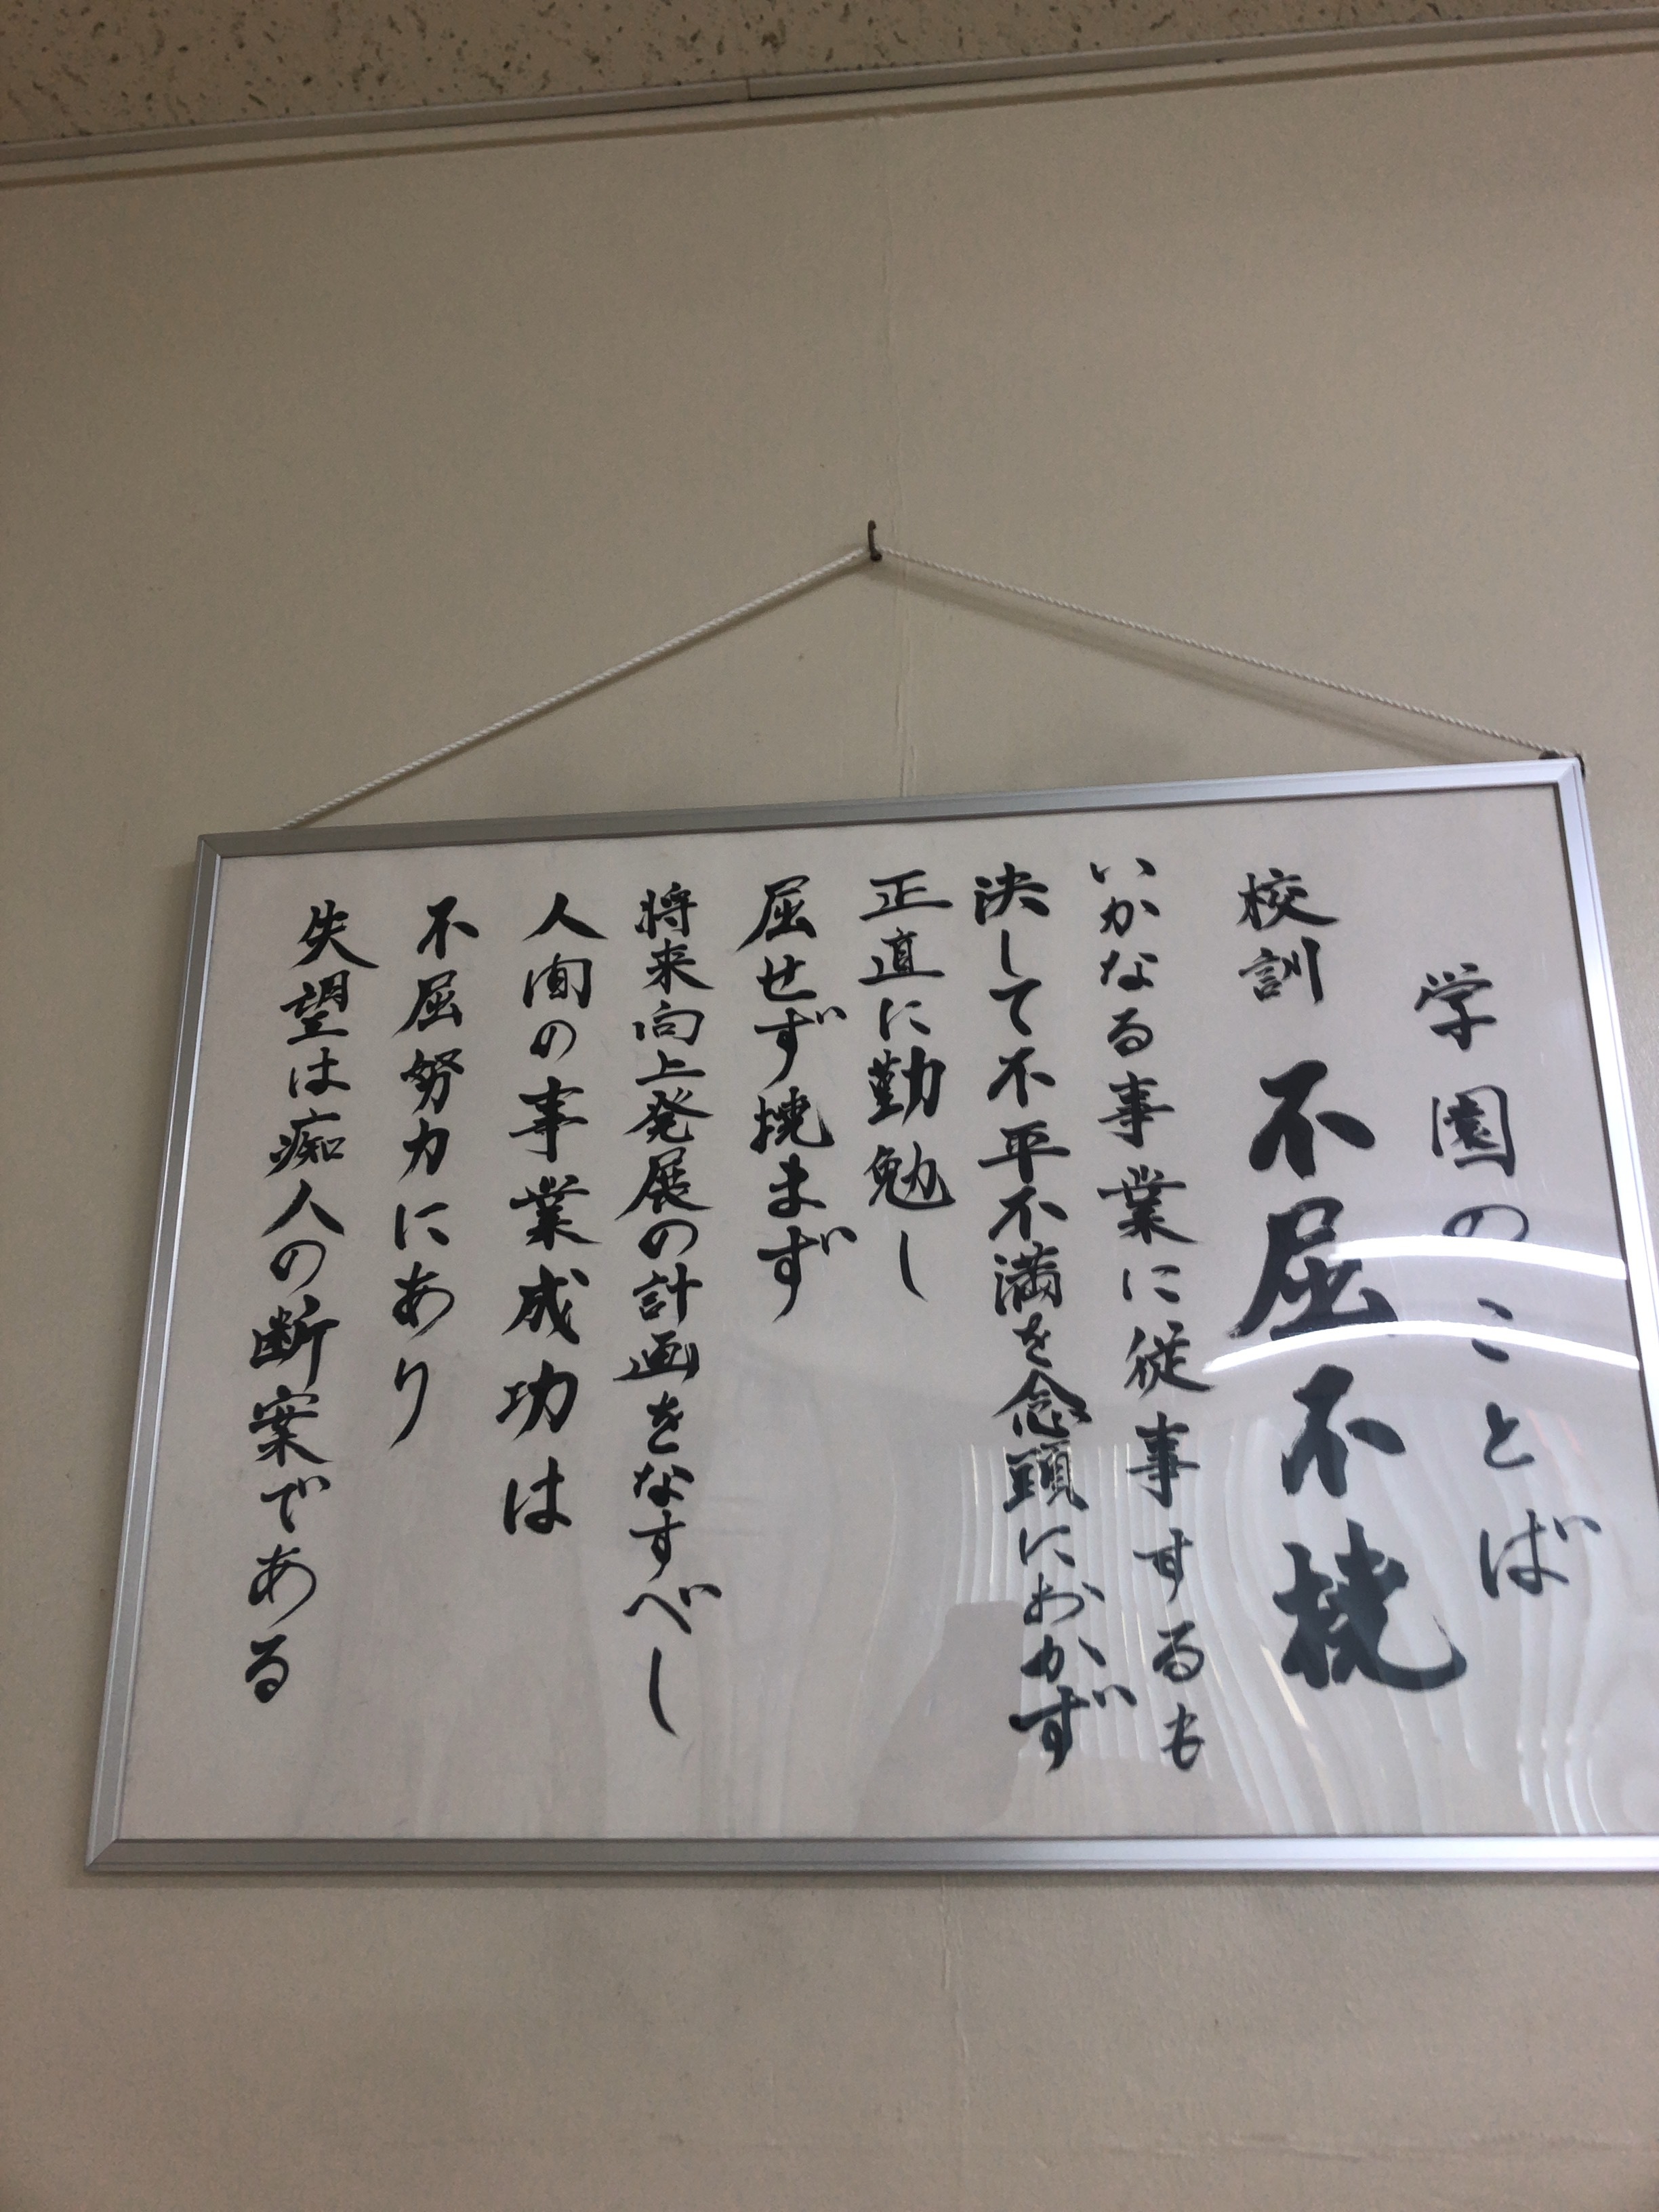 学園のことば
校訓 不屈不撓
いかなる事業に従事するも
決して不平不満を念頭におかず
正直に勤勉し
屈せず撓まず
将来向上発展の計画をなすべし
人間の事業成功は
不屈努力にあり
失望は痴人の断案である